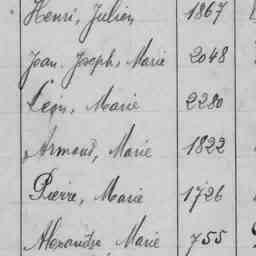 Henri, Julien 1867
Jean, Joseph, Marie 2048
Léon, Marie 2280
Armand, Marie 1822
Pierre, Marie 1726
Alexandre Marie 755